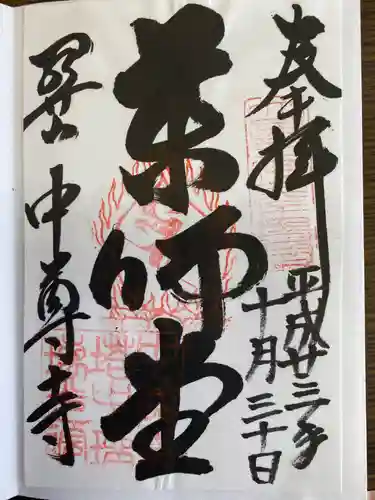 奉拝
平成廿三年
十月三十日
薬師堂
関山 中尊寺